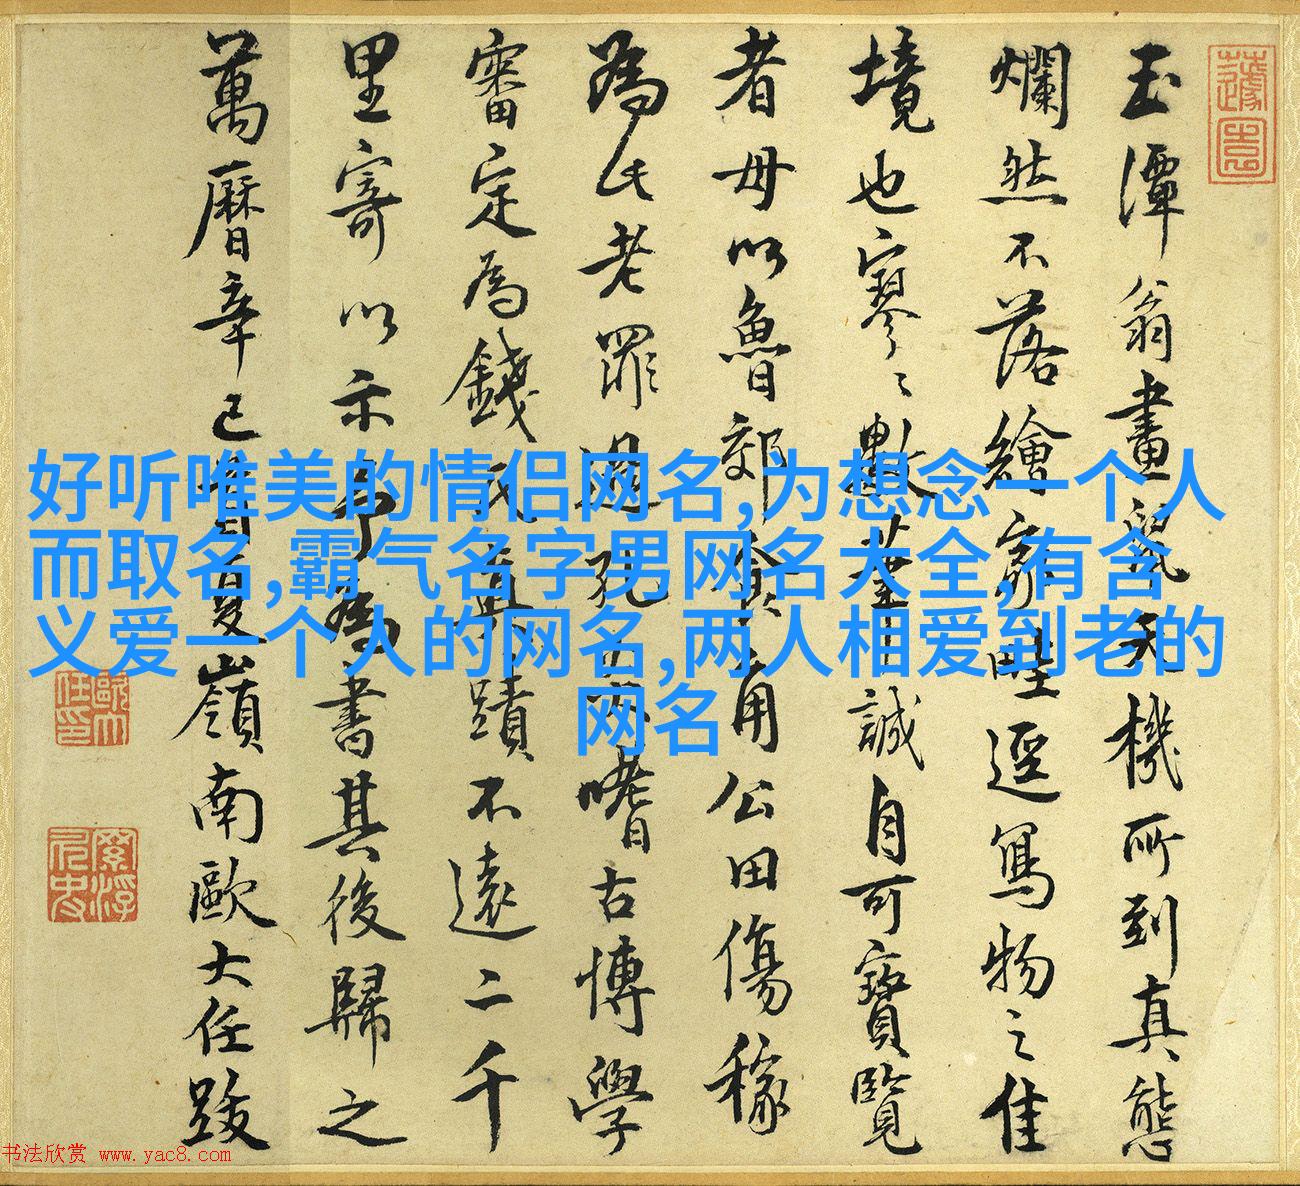 玉潭翁畫鼠天機所到真態
爛然不落繪家畦逕寫物之佳
境也寥〻數筆誠自可寶覽
者毋以魯郊食角公田傷稼
為氏老罪過 嗜古博學
審定為錢氏真蹟不遠二千
里寄以示予為書其後歸之
萬曆辛巳首夏嶺南歐大任跋
歐大任印
好听唯美的情侣网名,为想念一个人
而取名,霸气名字男网名大全,有含
义爱一个人的网名,两人相爱到老的
网名
书法欣赏 www.yac8.com